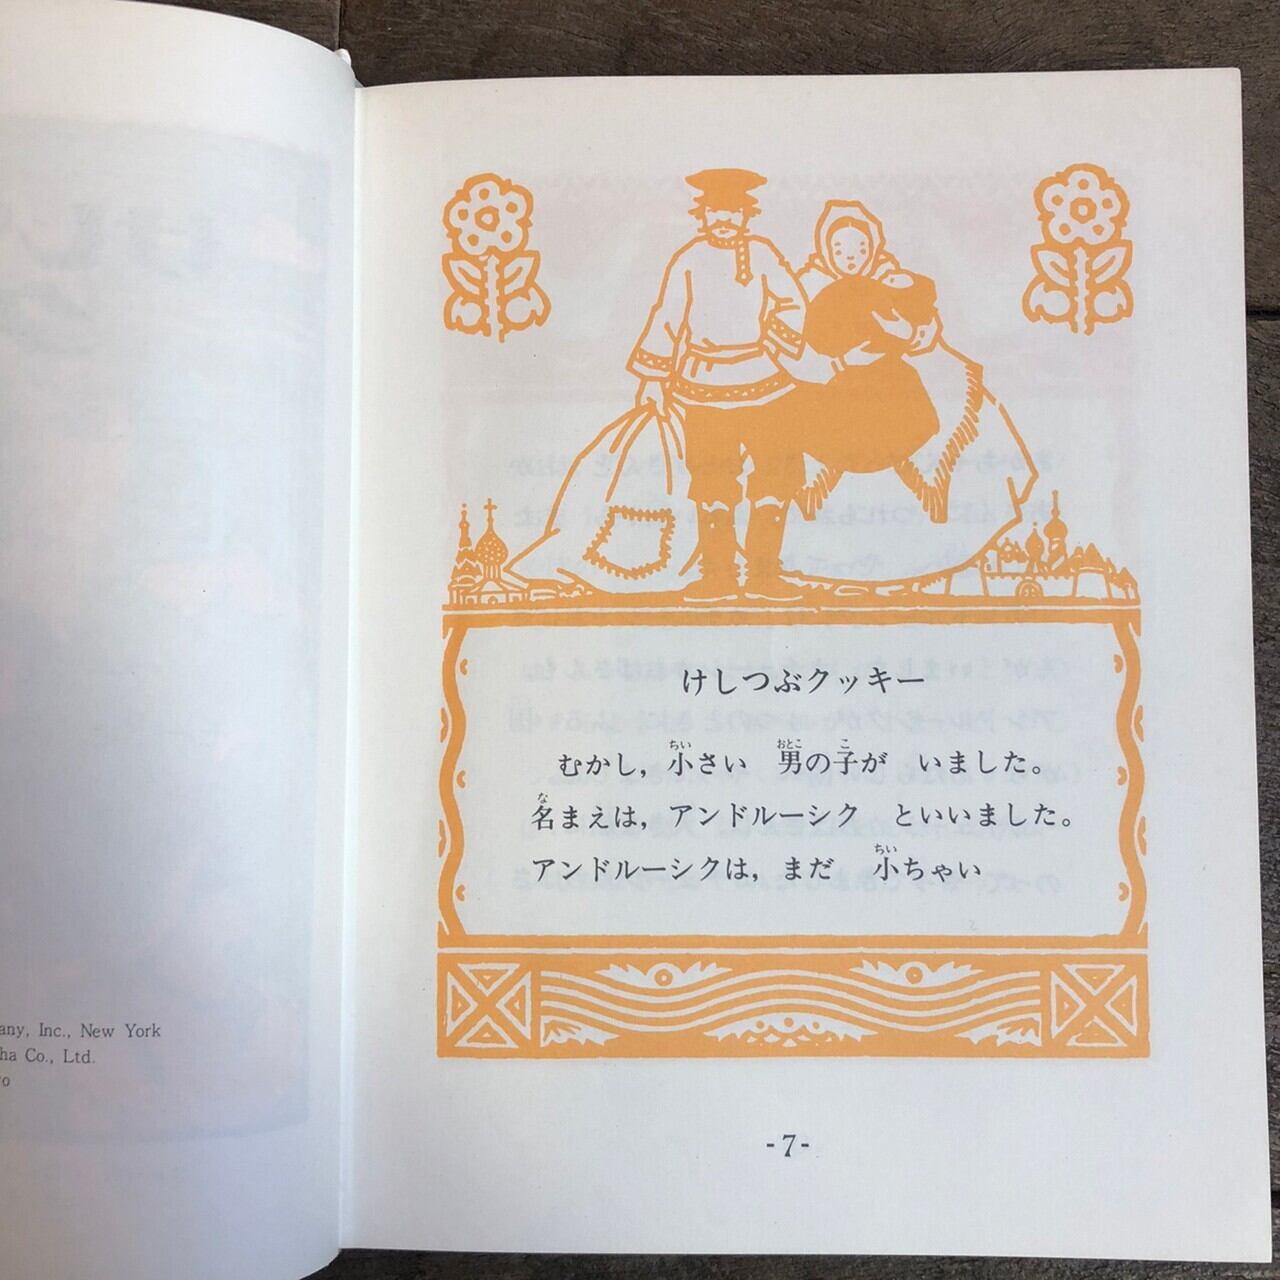 any, Inc., New York
ha Co., Ltd.
けしつぶクッキー
むかし, 小さい 男の子が いました。
名まえは, アンドルーシク といいました。
アンドルーシクは, まだ 小ちゃい
-7-